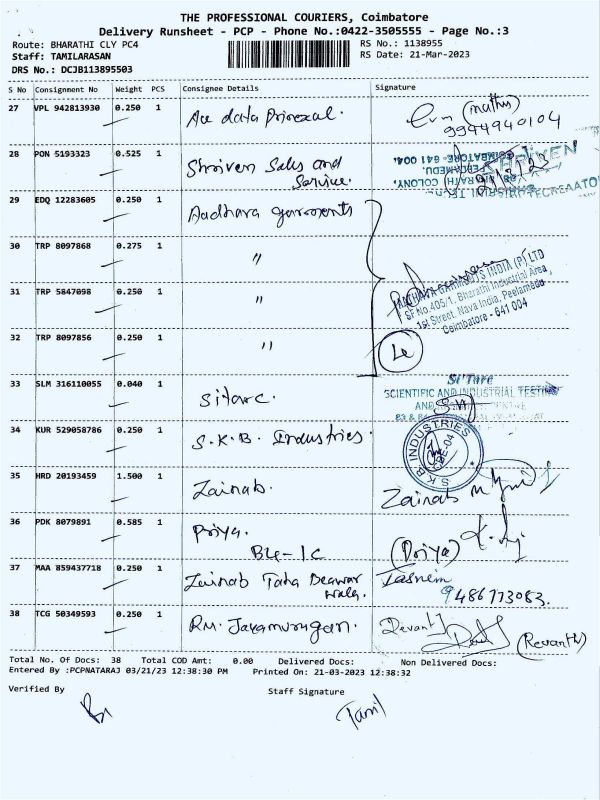 THE PROFESSIONAL COURIERS, Coimbatore
Delivery Runsheet - PCP - Phone No.:0422-3505555 - Page No.:3
Route: BHARATHI CLY PC4
RS No.: 1138955
Staff: TAMILARASAN
RS Date: 21-Mar-2023
DRS No.: DCJB113895503
S No Consignment No Weight PCS Consignee Details Signature
27 VPL 942813930 0.250 1 data (mathy)
9944940104
28 PON 5193323 0.525 1 Shriven Sales and
Service.
COIMBATORE 641 004.
21/3/23
29 EDQ 12283605 0.250 1 Aadhava garments
30 TRP 8097868 0.275 1 "
AADHAVA GARMENTS INDIA (P) LTD
SF No.405/1, Bharathi Industrial Area,
1st Street, Nava India, Peelamedu
Coimbatore - 641 004
31 TRP 5847098 0.250 1 "
32 TRP 8097856 0.250 1 "
33 SLM 316110055 0.040 1 Sitarc.
Si'Tarc
SCIENTIFIC AND INDUSTRIAL TESTING
AND
34 KUR 529058786 0.250 1 S.K.B. Industries.
S K B INDUSTRIES
CBE-04
35 HRD 20193459 1.500 1 Zainab.
Zainab
36 PDK 8079891 0.585 1 Priya.
(Priya)
37 MAA 859437718 0.250 1 Zainab Taha
Tasneem
9486773083.
38 TCG 50349593 0.250 1 RM. Jayamurugan.
Revanth (Revanth)
Total No. Of Docs: 38 Total COD Amt: 0.00 Delivered Docs: Non Delivered Docs:
Entered By :PCPNATARAJ 03/21/23 12:38:30 PM Printed On: 21-03-2023 12:38:32
Verified By Staff Signature
Tamil